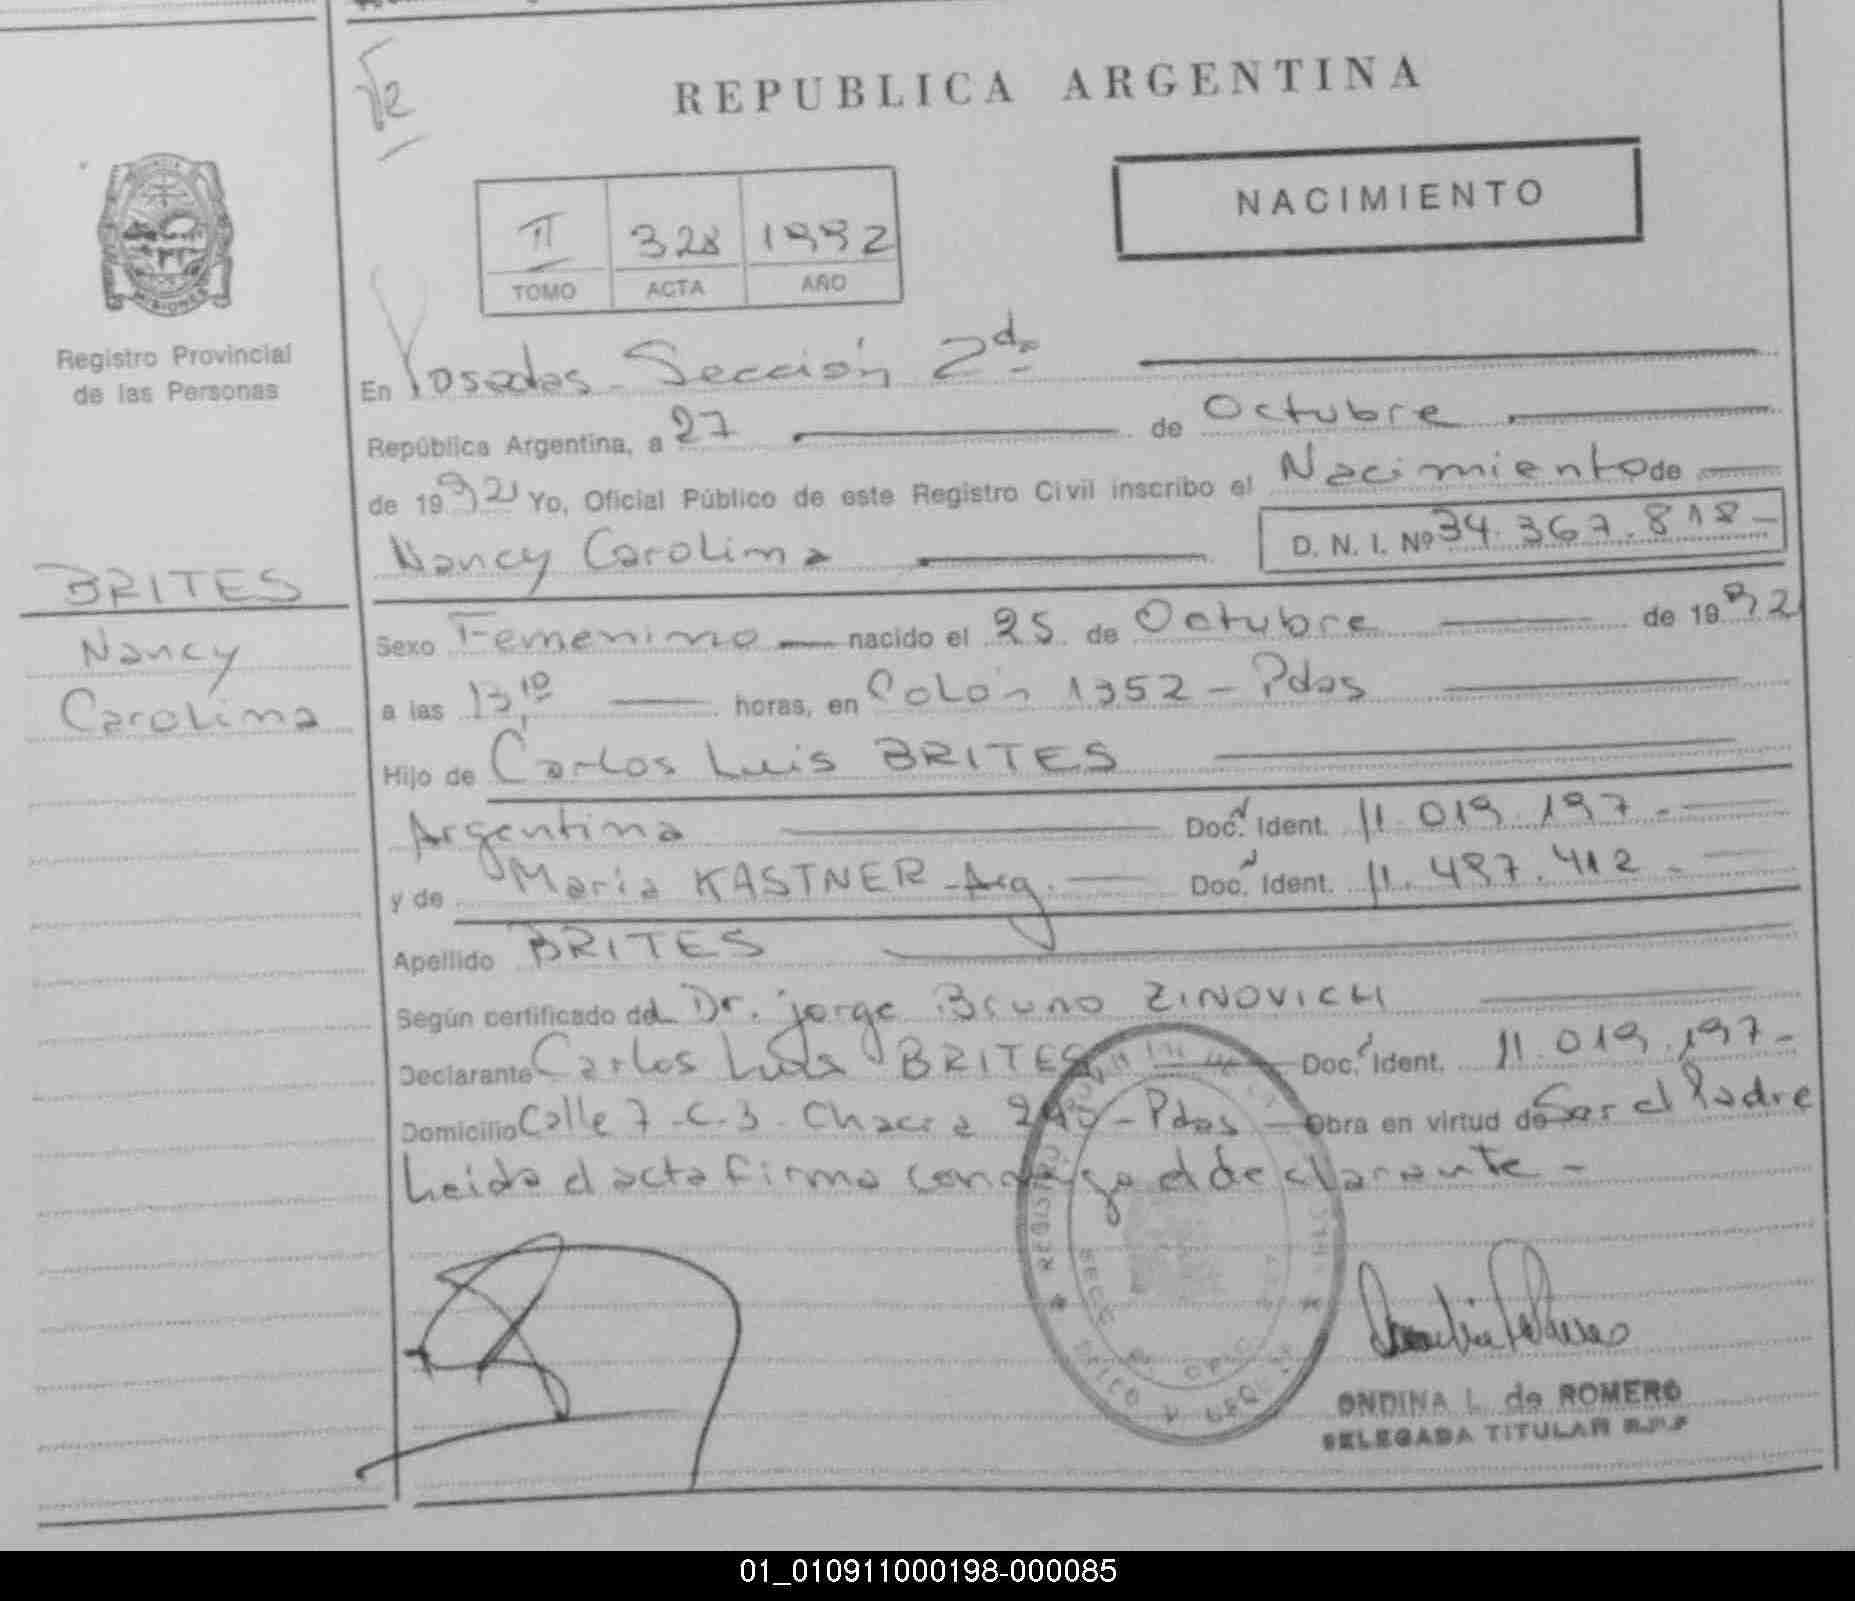 REPUBLICA ARGENTINA
NACIMIENTO
II 328 1992
TOMO ACTA AÑO
Registro Provincial
de las Personas
BRITES
Nancy
Carolina
En Posadas - Sección 2da
República Argentina, a 27 de Octubre
de 1992 Yo, Oficial Público de este Registro Civil inscribo el Nacimiento de
Nancy Carolina D. N. I. Nº 34.367.818-
Sexo Femenino nacido el 25 de Octubre de 1992
a las 13,10 horas, en Colón 1352 - Pdas
Hijo de Carlos Luis BRITES
Argentina Doc. Ident. 11.019.197-
y de Maria KASTNER - Arg. Doc. Ident. 11.497.412-
Apellido BRITES
Según certificado del Dr. Jorge Bruno ZINOVICH
Declarante Carlos Luis BRITES Doc. Ident. 11.019.197-
Domicilio Calle 7 - C. 3 - Chacra - Pdas - Obra en virtud de Ser el Padre
Leida el acta firma conmigo el declarante -
ONDINA L. de ROMERO
DELEGADA TITULAR R.P.P
01_010911000198-000085